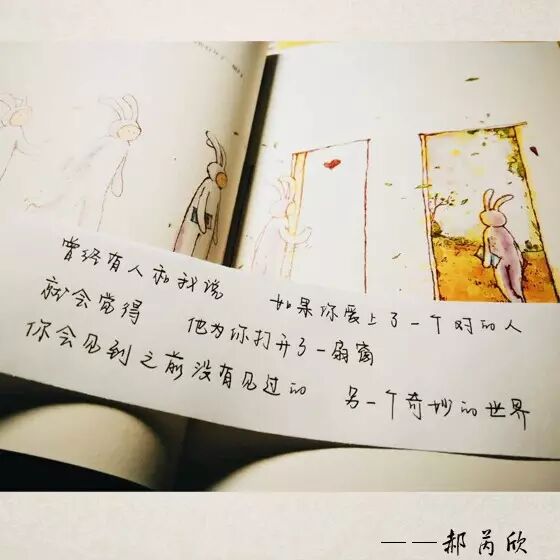 曾经有人和我说 如果你爱上了一个对的人
就会觉得 他为你打开了一扇窗
你会见到之前没有见过的 另一个奇妙的世界
——郝芮欣